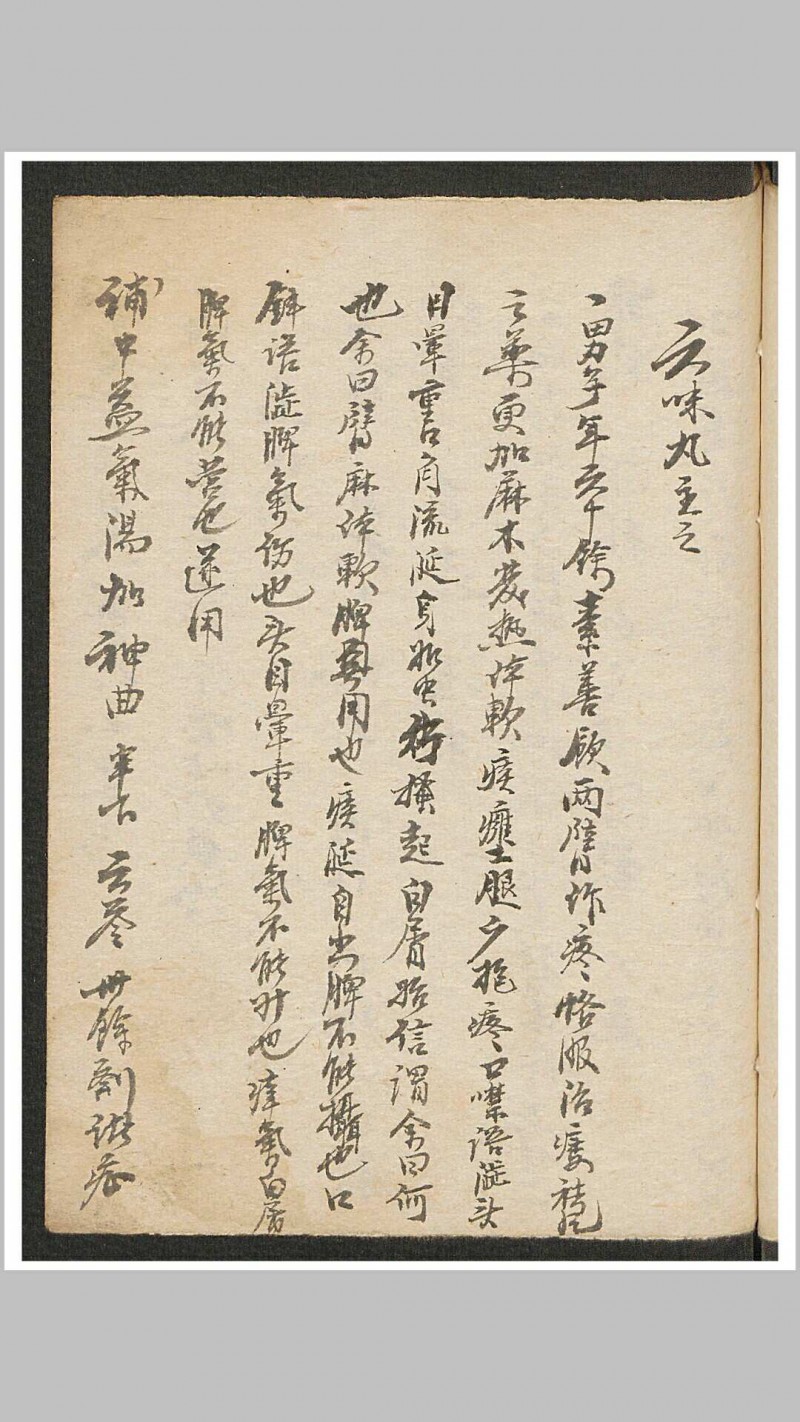 六味丸主之
一男子年六十餘素善飲两臂作疼恪服治痿祛风
之药更加麻木發热体軟痰壅腿夕拘疼口噤语澁头
目暈重口角流涎身如虫行搔起白屑始信謂余曰何
也余曰臂麻体軟脾無用也痰涎自出脾不能攝也口
斜语澁脾氣伤也头目暈重脾氣不能升也痒起白屑
脾氣不能营也遂用
補中益氣湯加神曲半下云苓卅餘劑诸症